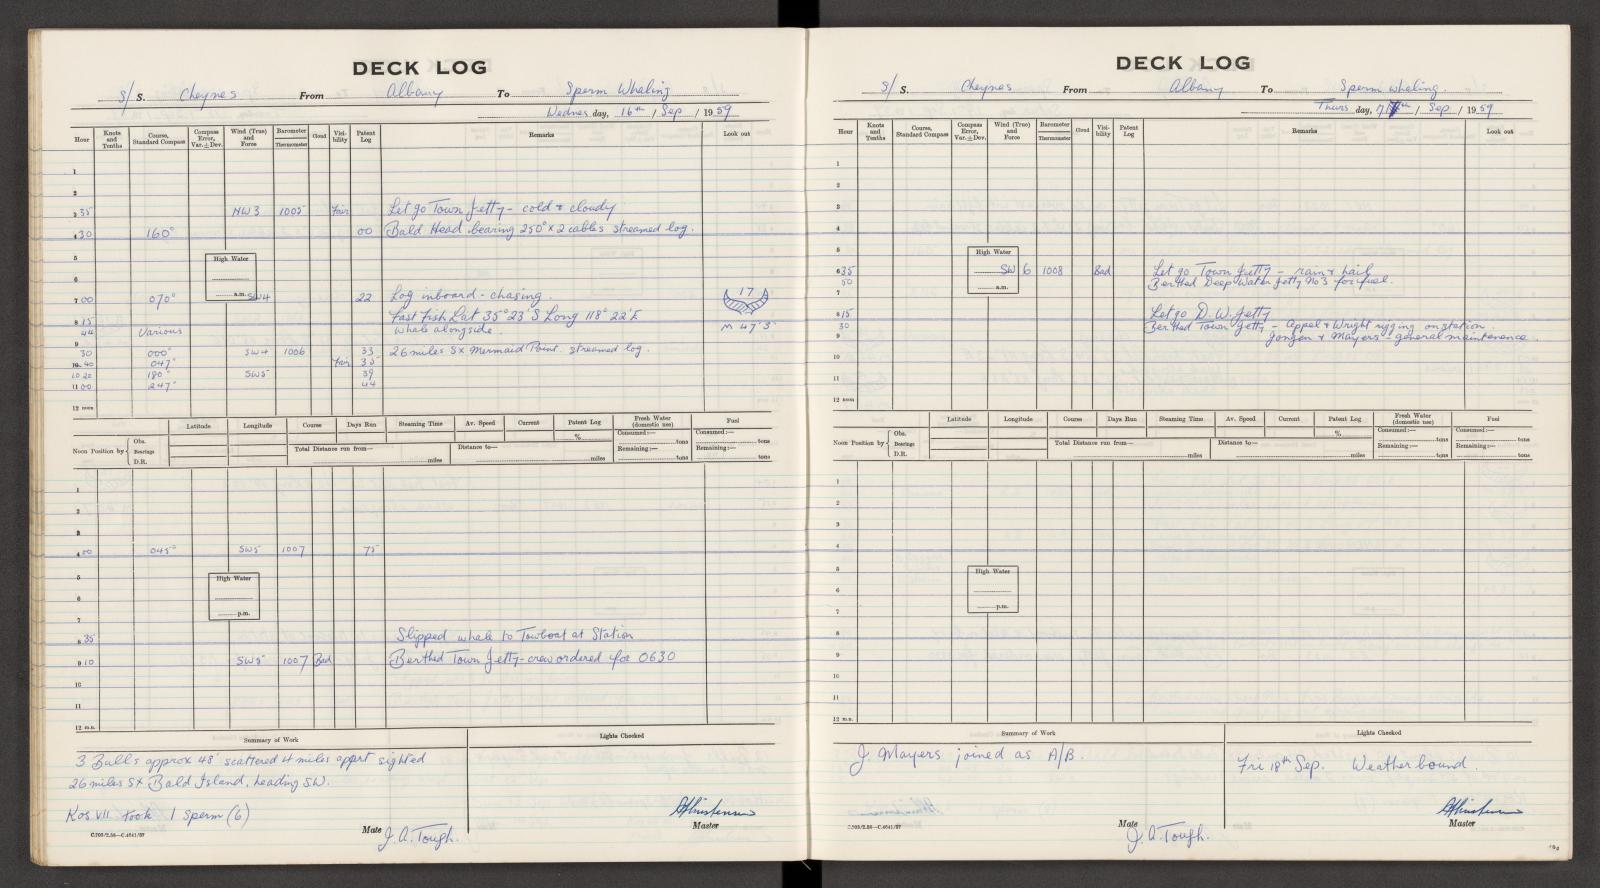 DECK LOG
S/ S. Cheynes From Albany To Sperm Whaling
Wednes day, 16th / Sep / 1959
Hour Knots and Tenths Course, Standard Compass Compass Error, Var. ± Dev. Wind (True) and Force Barometer Thermometer Cloud Visibility Patent Log Remarks Look out
1
2
3 35 NW 3 1005 Fair Let go Town Jetty - cold & cloudy
4 30 160° 00 Bald Head bearing 250° x 2 cables streamed log.
5 High Water
6
a.m.
7 00 070° SW4 22 Log inboard - chasing. 17
8 15 Fast Fish Lat 35° 23' S Long 118° 22' E
44 Various whale alongside. M 47' 3"
9
30 000° SW4 1006 33 26 miles Sx Mermaid Point. streamed log.
10 40 047° Fair 35
10 20 180° SW5 39
11 00 247° 44
12 noon
Latitude Longitude Course Days Run Steaming Time Av. Speed Current Patent Log Fresh Water (domestic use) Fuel
% Consumed:— tons Consumed:— tons
Noon Position by Obs. Bearings D.R. Total Distance run from— miles Distance to— miles Remaining:— tons Remaining:— tons
1
2
3
4 00 045° SW5 1007 75
5 High Water
6
p.m.
7
8 35 Slipped whale to Towboat at Station
9 10 SW5 1007 Bad Berthed Town Jetty - crew ordered for 0630
10
11
12 m.n.
Summary of Work Lights Checked
3 Bulls approx 48' scattered 4 miles appart sighted
26 miles Sx Bald Island, heading SW.
Kos VII took 1 Sperm (6)
Mate J. A. Tough. Master
C.709/2.58—C.4641/57
DECK LOG
S/ S. Cheynes From Albany To Sperm whaling.
Thurs day, 17th / Sep / 1959
Hour Knots and Tenths Course, Standard Compass Compass Error, Var. ± Dev. Wind (True) and Force Barometer Thermometer Cloud Visibility Patent Log Remarks Look out
1
2
3
4
5 High Water
6 35 SW 6 1008 Bad Let go Town Jetty - rain & hail
50 Berthed Deep Water Jetty No 3 for fuel.
a.m.
7
8 15 Let go D. W. Jetty
30 Berthed Town Jetty - Appel & Wright rigging on station.
9 Jongen & Mayers - general maintenance.
10
11
12 noon
Latitude Longitude Course Days Run Steaming Time Av. Speed Current Patent Log Fresh Water (domestic use) Fuel
% Consumed:— tons Consumed:— tons
Noon Position by Obs. Bearings D.R. Total Distance run from— miles Distance to— miles Remaining:— tons Remaining:— tons
1
2
3
4
5 High Water
6
p.m.
7
8
9
10
11
12 m.n.
Summary of Work Lights Checked
J. Mayers joined as A/B.
Fri 18th Sep. Weatherbound.
Mate J. A. Tough. Master
C.709/2.58—C.4641/57